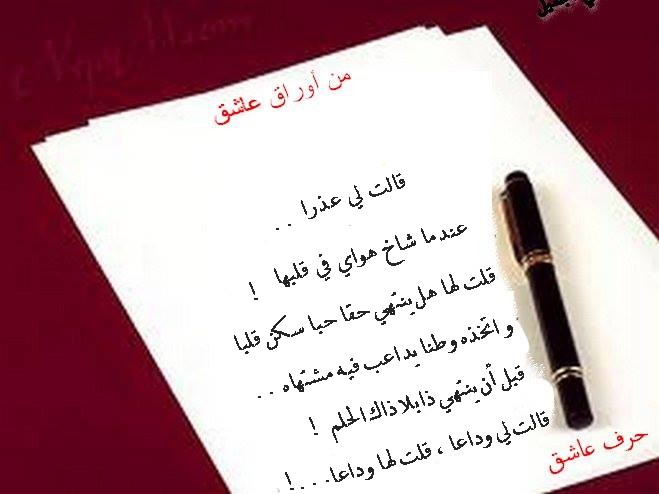 من أوراق عاشق
قالت لي عذرا . .
عندما شاخ هواي في قلبها !
قلت لها هل ينتهي حقا حبا سكن قلبا
و اتخذه وطنا يداعب فيه مشتهاه . . .
قبل أن ينتهي ذابلا ذاك الحلم !
قالت لي وداعا ، قلت لها وداعا . . . . !
حرف عاشق